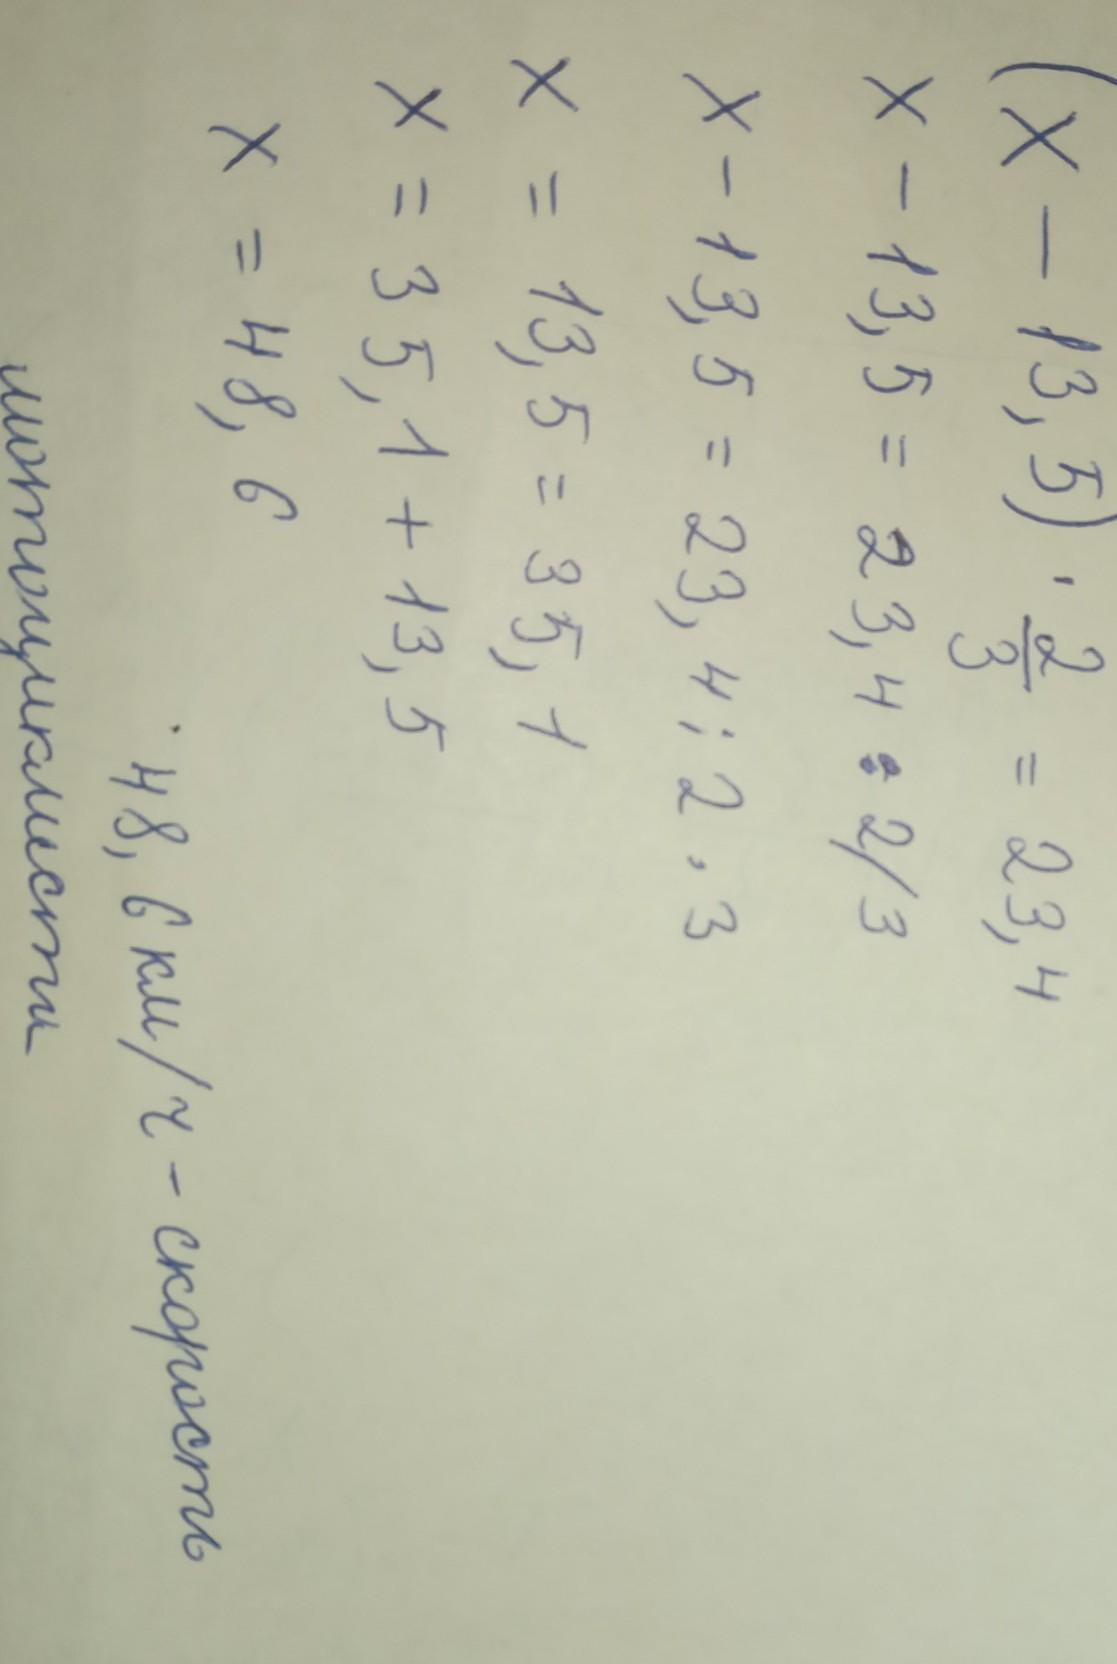 (x - 13,5) · 2/3 = 23,4
x - 13,5 = 23,4 : 2/3
x - 13,5 = 23,4 : 2 · 3
x = 13,5 = 35,1
x = 35,1 + 13,5
x = 48,6
48,6 км/ч - скорость
мотоциклисти